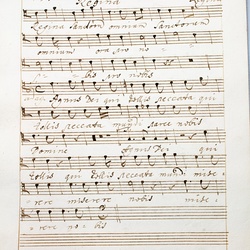 Regina Regina
Regina Sanctorum omnium Sanctorum
omnium ora pro no
bis pro nobis
Agnus Dei qui tollis peccata qui
tollis peccata mundi parce nobis
Domine Agnus Dei qui
tollis qui tollis peccata mundi mise
rere miserere nobis mise
rere nobis